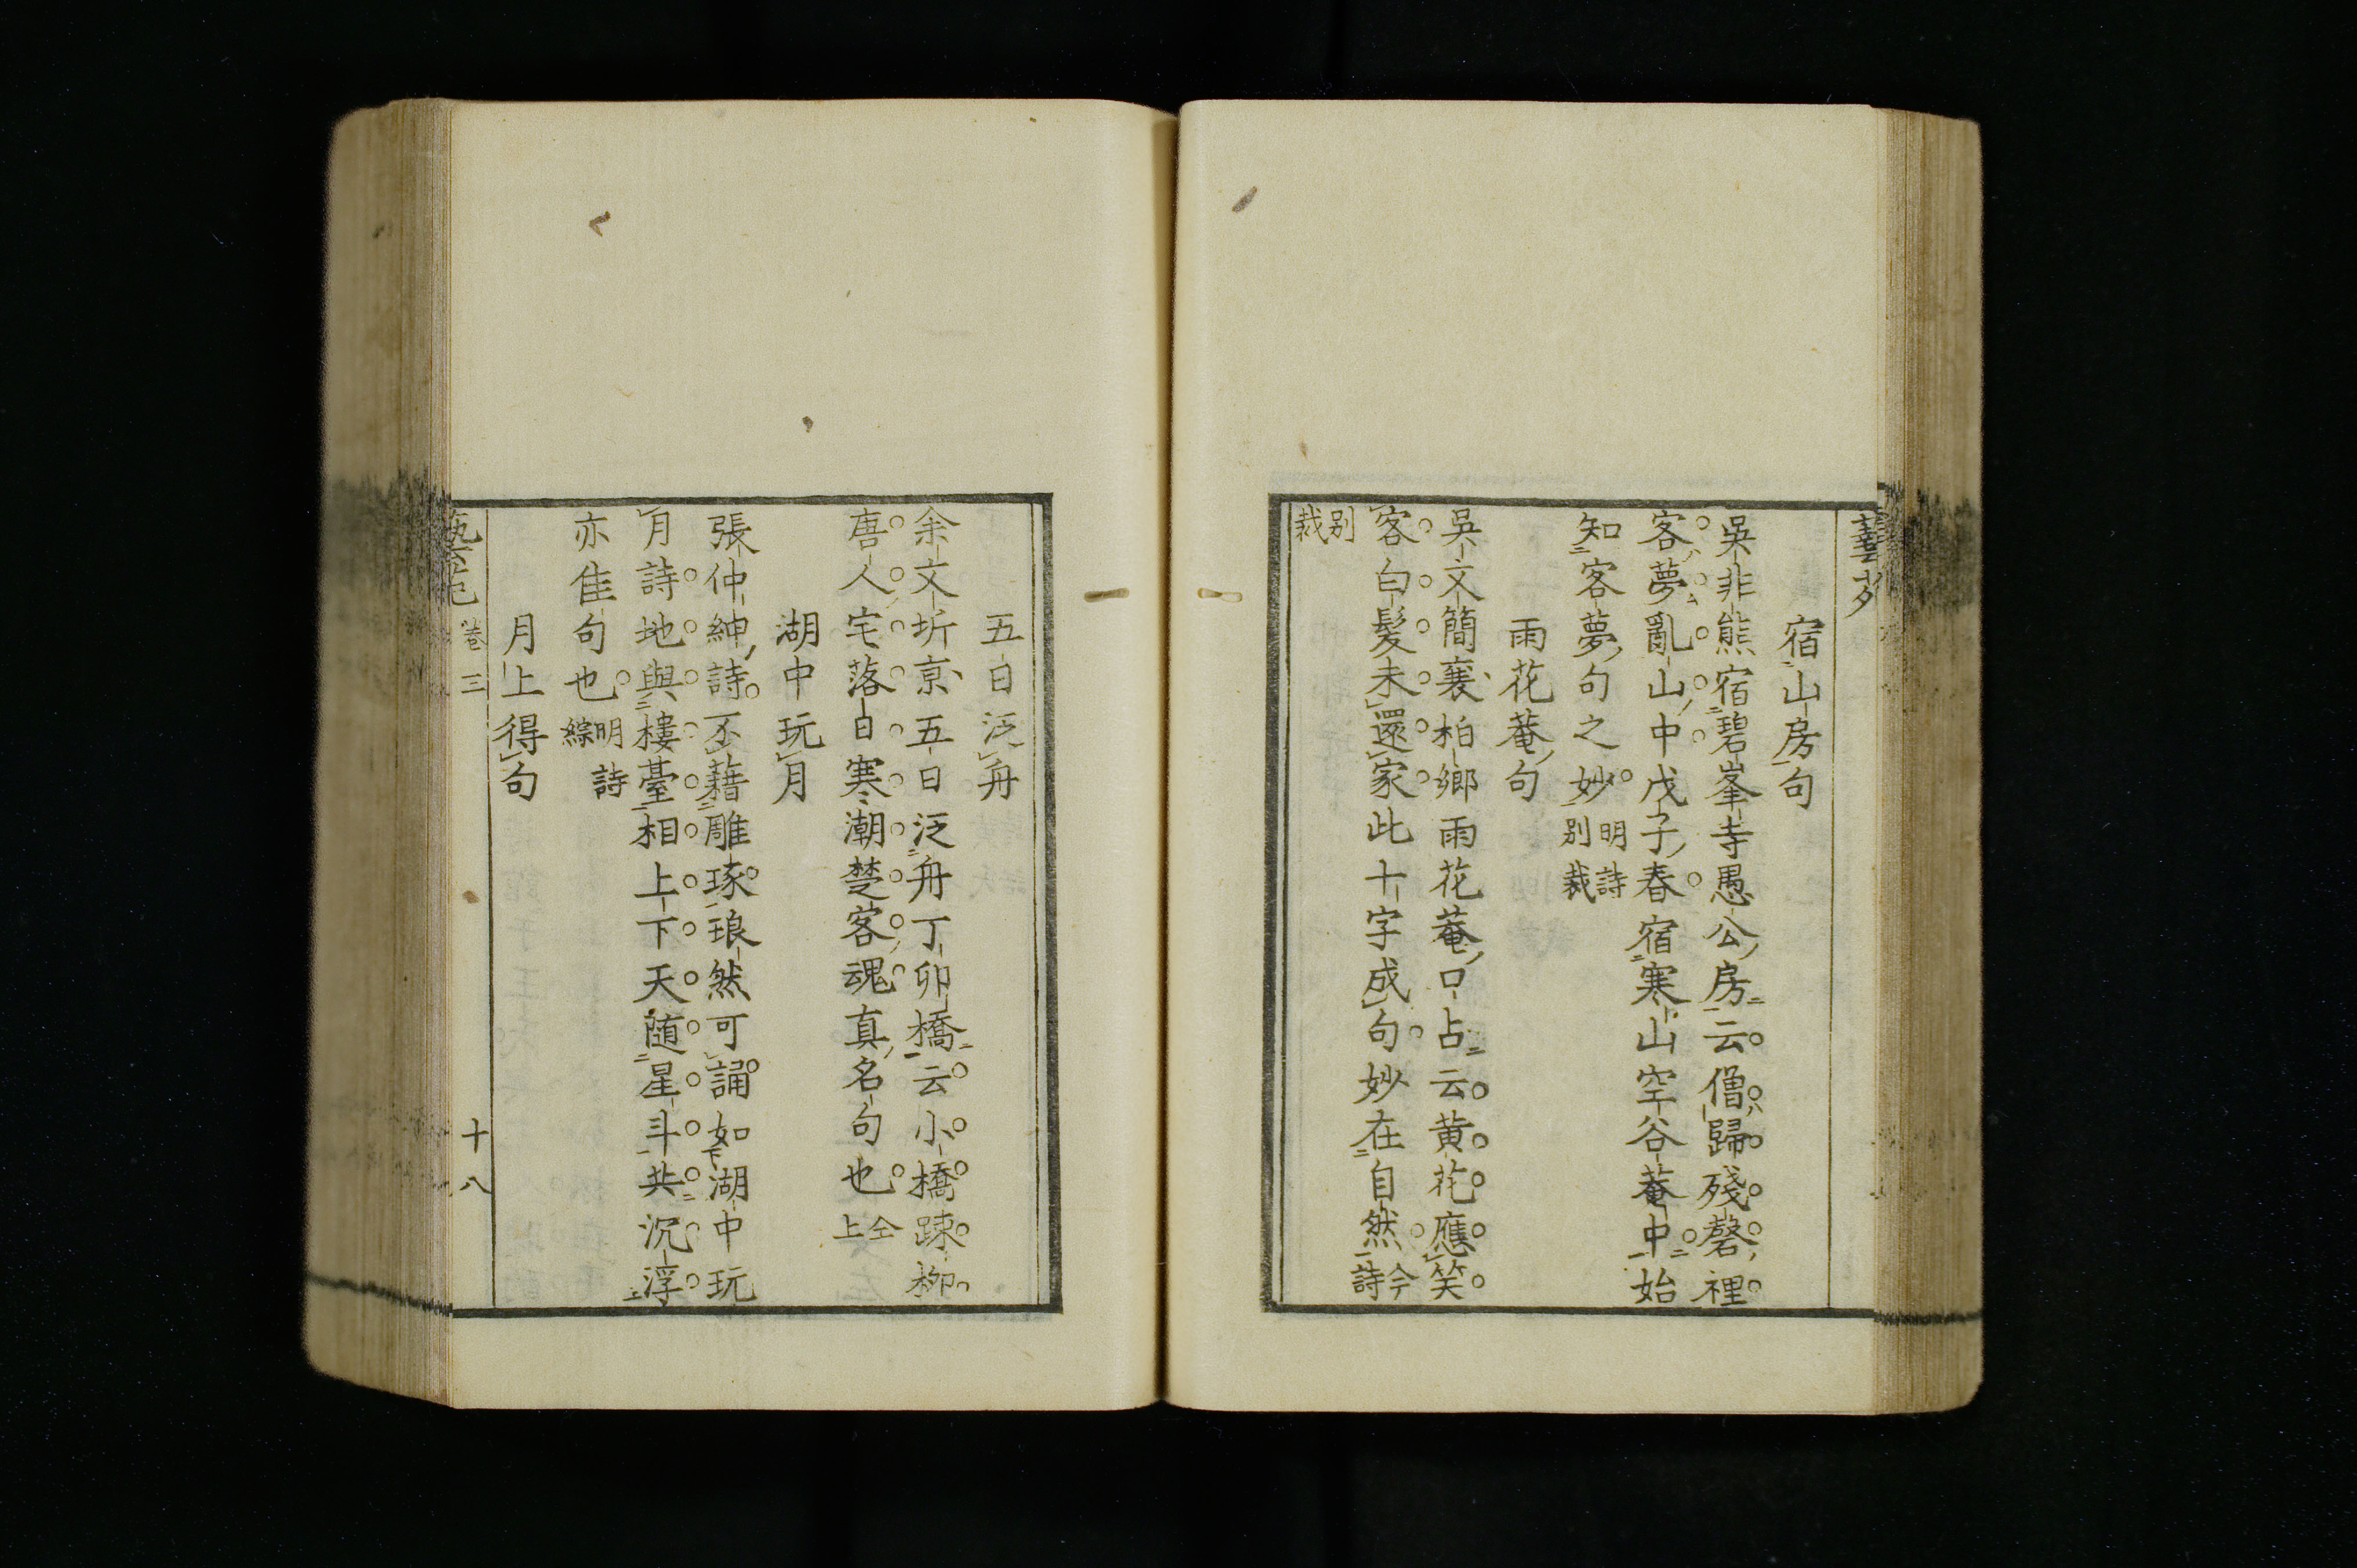 宿山房句
吳非熊宿碧峯寺愚公房云僧歸殘磬裡
客夢亂山中戊子春宿寒山空谷菴中始
知客夢句之妙明詩別裁
雨花菴句
吳文簡襄柏鄉雨花菴口占云黄花應笑
客白髪未還家此十字成句妙在自然今詩
別裁
五日泛舟
余文圻京五日泛舟丁卯橋云小橋踈柳
唐人宅落日寒潮楚客魂真名句也仝上
湖中玩月
張仲紳詩不藉雕琢琅然可誦如湖中玩
月詩地與樓臺相上下天随星斗共沉浮
亦佳句也明詩綜
月上得句
卷三 十八